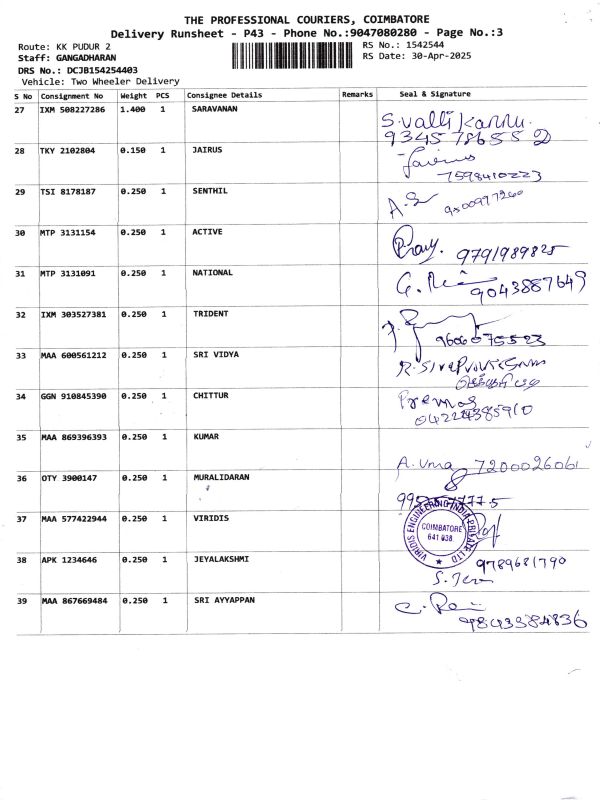 THE PROFESSIONAL COURIERS, COIMBATORE
Delivery Runsheet - P43 - Phone No.:9047080280 - Page No.:3
Route: KK PUDUR 2 RS No.: 1542544
Staff: GANGADHARAN RS Date: 30-Apr-2025
DRS No.: DCJB154254403
Vehicle: Two Wheeler Delivery
S No Consignment No Weight PCS Consignee Details Remarks Seal & Signature
27 IXM 508227286 1.400 1 SARAVANAN
S.Valli Kannu.
28 TKY 2102804 0.150 1 JAIRUS
Jairus
7598410223
29 TSI 8178187 0.250 1 SENTHIL
30 MTP 3131154 0.250 1 ACTIVE
9791989825
31 MTP 3131091 0.250 1 NATIONAL
9043887649
32 IXM 303527381 0.250 1 TRIDENT
33 MAA 600561212 0.250 1 SRI VIDYA
34 GGN 910845390 0.250 1 CHITTUR
35 MAA 869396393 0.250 1 KUMAR
A. Uma 7200026061
36 OTY 3900147 0.250 1 MURALIDARAN
37 MAA 577422944 0.250 1 VIRIDIS
VIRIDIS ENGINEERING INDIA PRIVATE LTD
COIMBATORE
641 038
38 APK 1234646 0.250 1 JEYALAKSHMI
9789681790
39 MAA 867669484 0.250 1 SRI AYYAPPAN